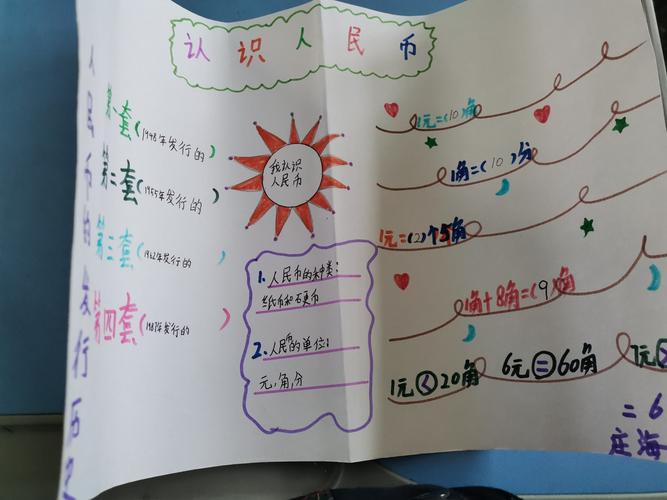 认识人民币
人民币的发行历史
第一套(1948年发行的)
第二套(1955年发行的)
第三套(1962年发行的)
第四套(1987年发行的)
我认识
人民币
1.人民币的种类:
纸币和硬币
2.人民币的单位:
元,角,分
1元=(10)角
1角=(10)分
1元=(2)个5角
1角+8角=(9)角
1元<20角 6元=60角 7元
二6
庄海